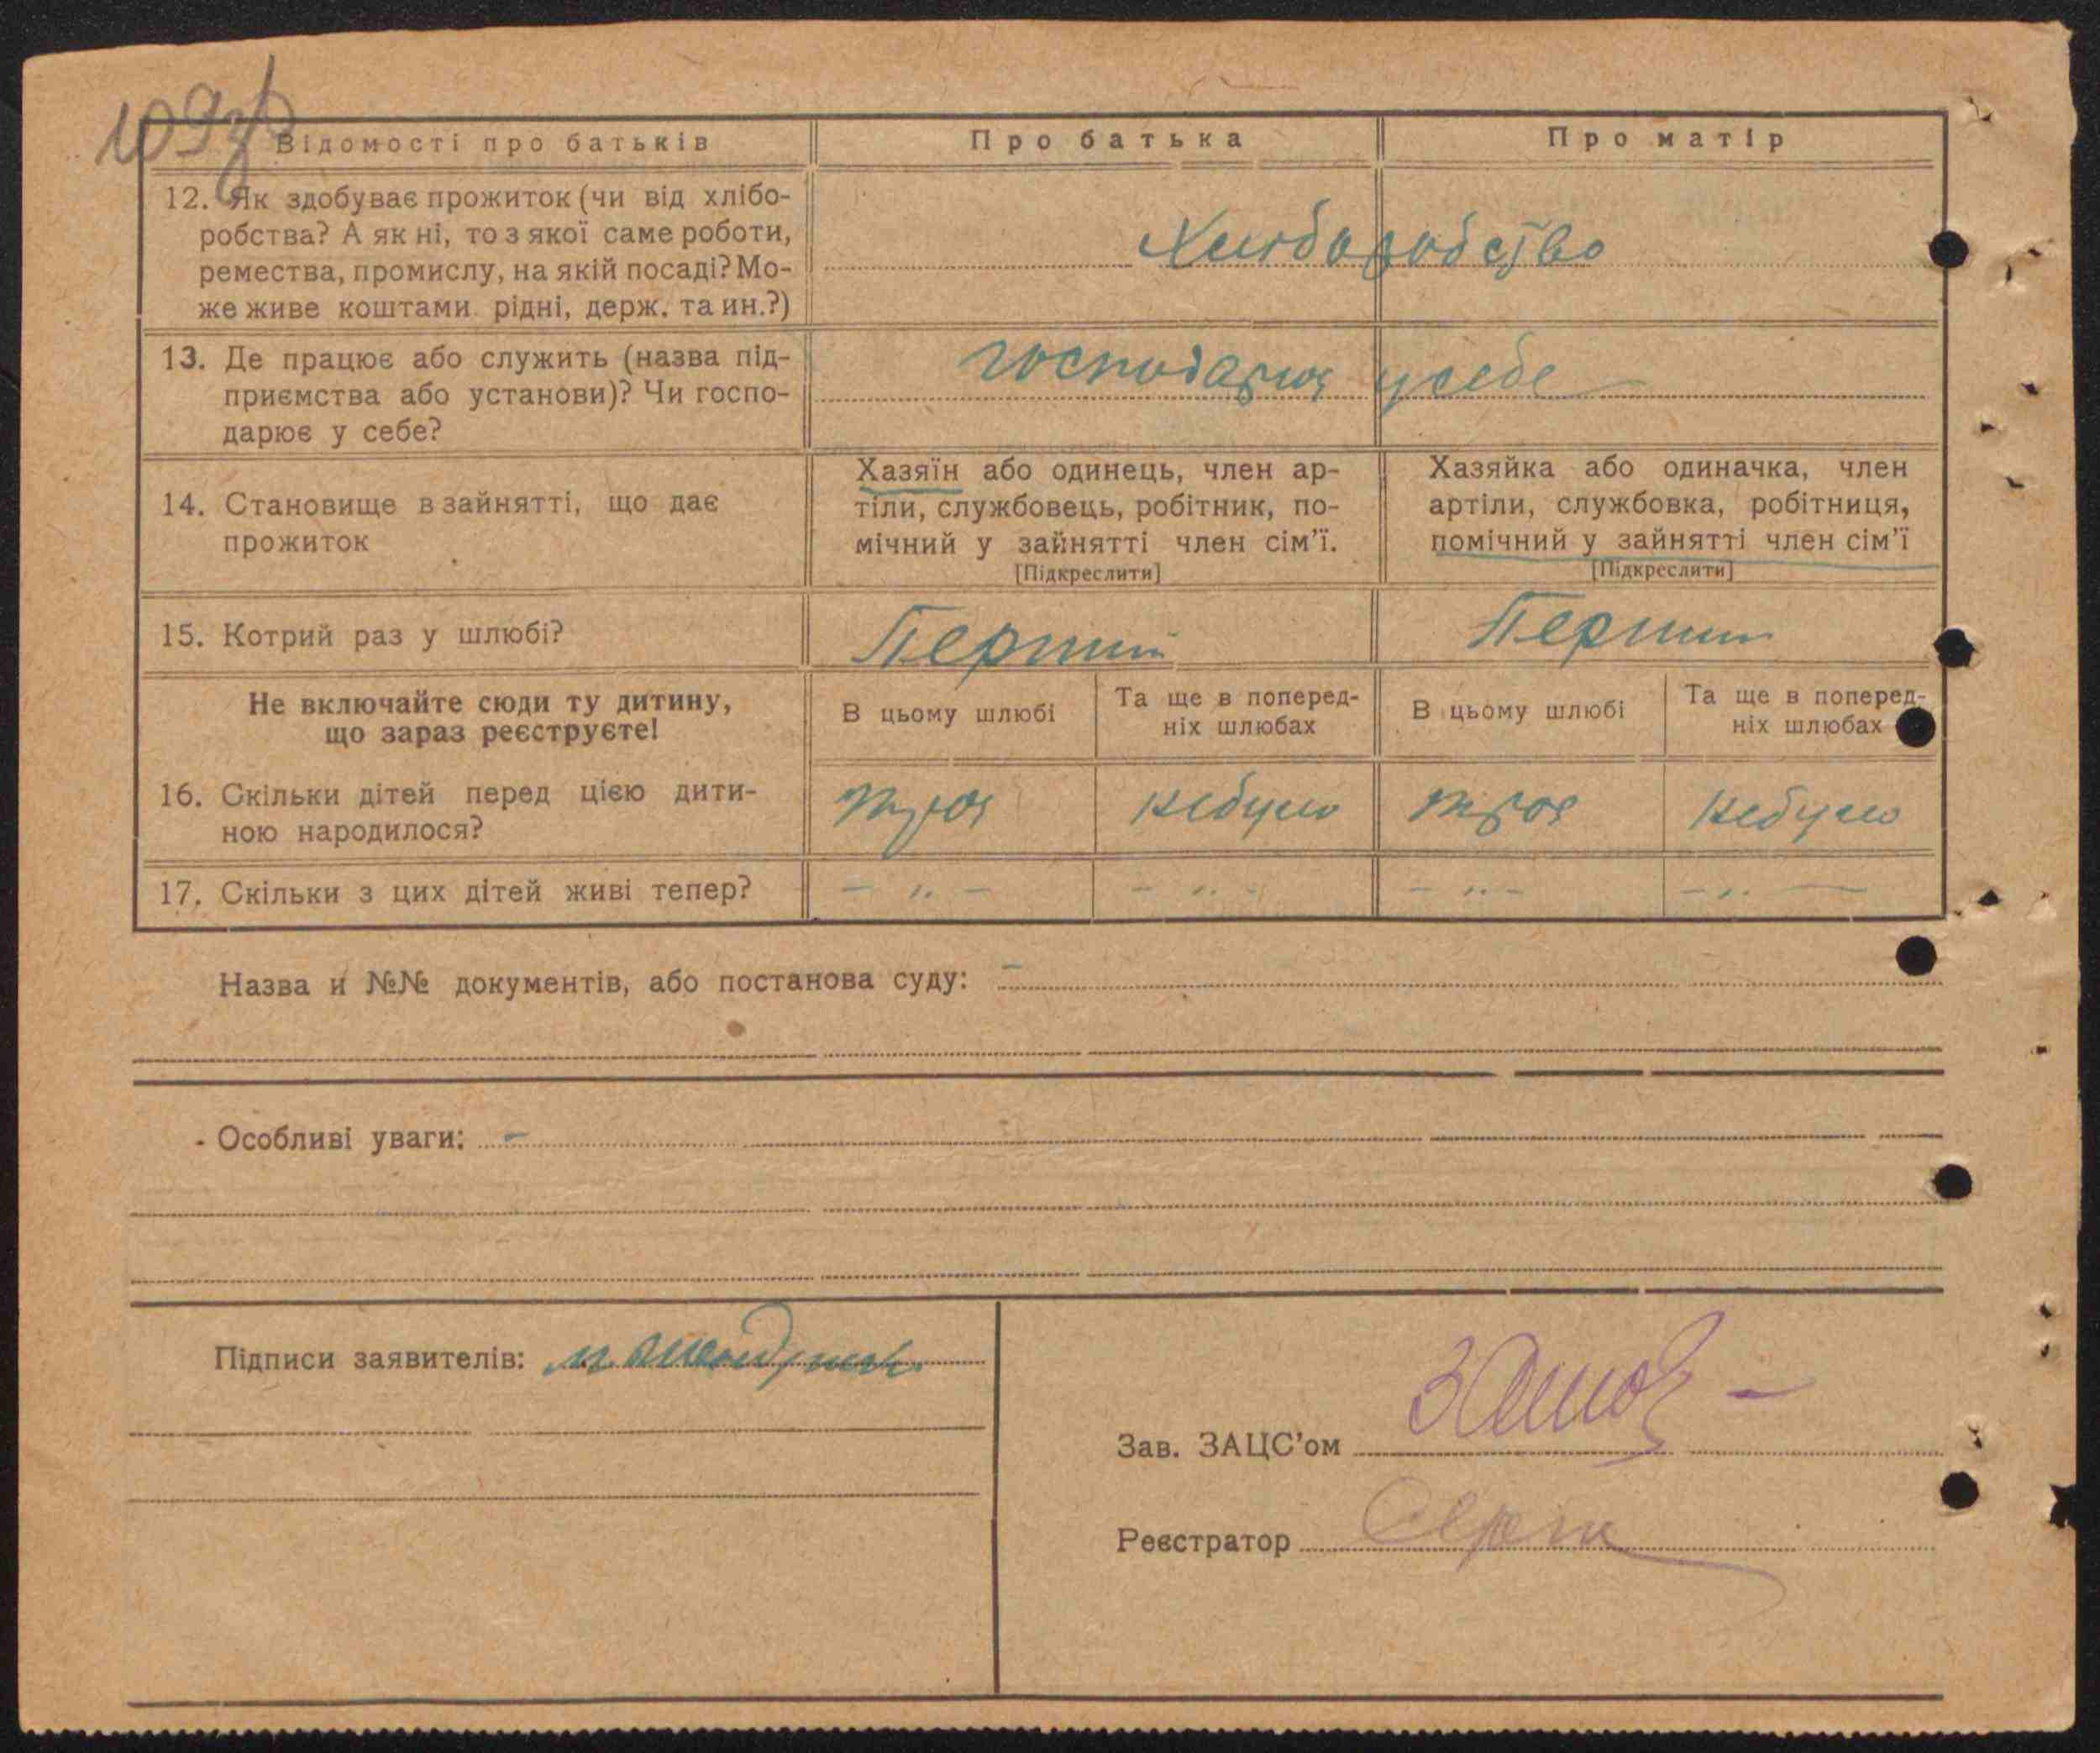 109зв
Відомості про батьків
Про батька
Про матір
12. Як здобуває прожиток (чи від хлібо-
робства? А як ні, то з якої саме роботи,
ремества, промислу, на якій посаді? Мо-
же живе коштами рідні, держ. та ин.?)
Хліборобство
13. Де працює або служить (назва під-
приємства або установи)? Чи госпо-
дарює у себе?
господарює у себе
14. Становище в зайнятті, що дає
прожиток
Хазяїн або одинець, член ар-
тіли, службовець, робітник, по-
мічний у зайнятті член сім'ї.
[Підкреслити]
Хазяйка або одиначка, член
артіли, службовка, робітниця,
помічний у зайнятті член сім'ї
[Підкреслити]
15. Котрий раз у шлюбі?
Перший
Перший
Не включайте сюди ту дитину,
що зараз реєструєте!
В цьому шлюбі
Та ще в поперед-
ніх шлюбах
В цьому шлюбі
Та ще в поперед-
ніх шлюбах
16. Скільки дітей перед цією дити-
ною народилося?
троє
небуло
троє
небуло
17. Скільки з цих дітей живі тепер?
- " -
- " -
- " -
- " -
Назва й №№ документів, або постанова суду: -
Особливі уваги: -
Підписи заявителів:
Зав. ЗАЦС'ом
Реєстратор